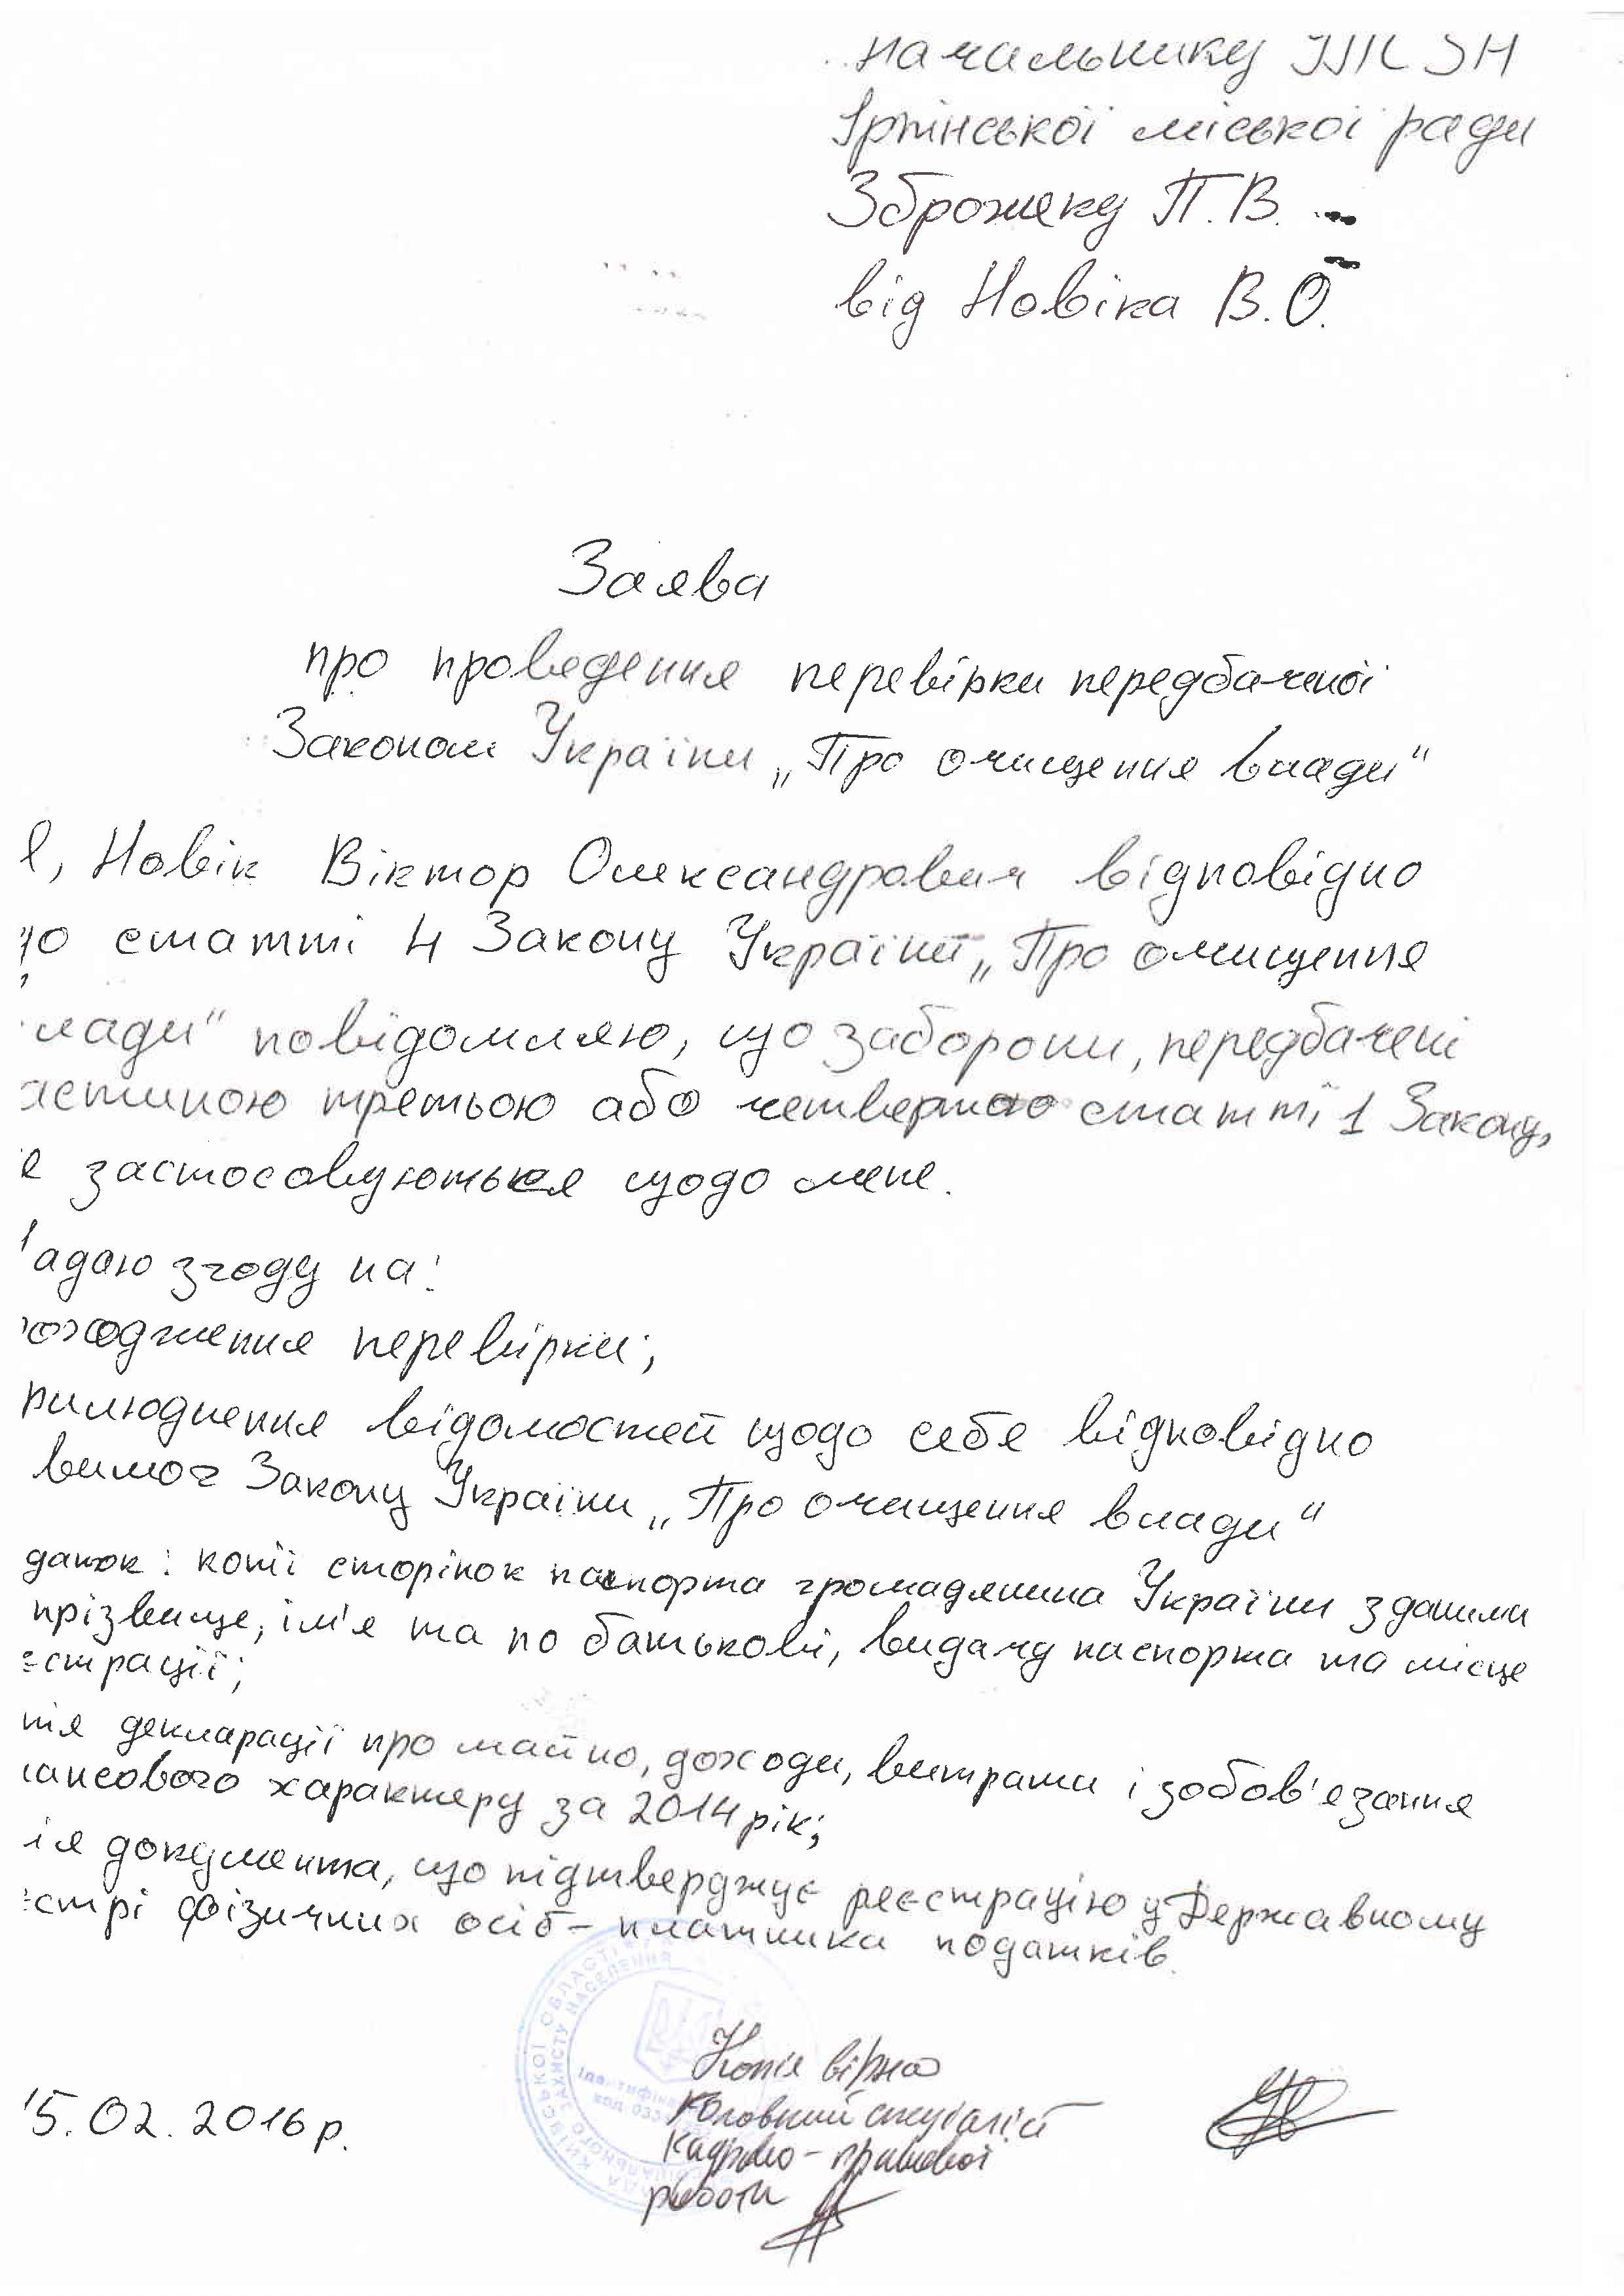 начальнику УПСЗН
Ірпінської міської ради
Зброжеку П.В.
від Новіка В.О.
Заява
про проведення перевірки передбаченої
Законом України „Про очищення влади"
Я, Новік Віктор Олександрович відповідно
до статті 4 Закону України „Про очищення
лади" повідомляю, що заборони, передбачені
астиною третьою або четвертою статті 1 Закону,
е застосовуються щодо мене.
адаю згоду на:
оходження перевірки;
рилюднення відомостей щодо себе відповідно
вимог Закону України „Про очищення влади"
даток: копії сторінок паспорта громадянина України з даними
прізвище, ім'я та по батькові, видачу паспорта та місце
єстрації;
пія декларації про майно, доходи, витрати і зобов'язання
нансового характеру за 2014 рік;
ія документа, що підтверджує реєстрацію у Державному
єстрі фізичних осіб-платника податків.
КИЇВСЬКОЇ ОБЛАСТІ
ЗАХИСТУ НАСЕЛЕННЯ
Копія вірна
Головний спеціаліст
кадрово-правової
роботи
15.02.2016р.